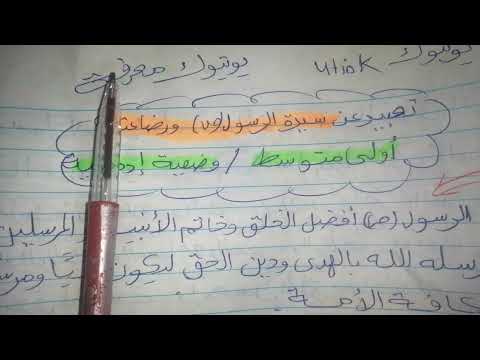 يوتيوك معرفة utiok يوتيوك
تعبير عن سيرة الرسول (ص) ورضاعته
أولى متوسط / وصفية إدماجية
الرسول (ص) أفضل الخلق وخاتم الأنبياء المرسلين
رسله الله بالهدى ودين الحق ليكون
كافة الأمة